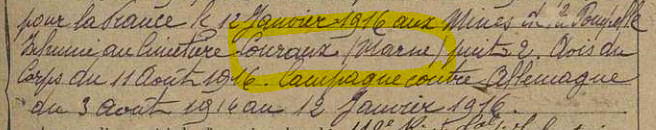 pour la France le 12 Janvier 1916 aux Mines
Inhumé au Cimetière Couraux (Marne) puits 2 Avis du
Corps du 11 Aout 1916. Campagne contre Allemagne
du 3 Aout 1914 au 12 Janvier 1916.